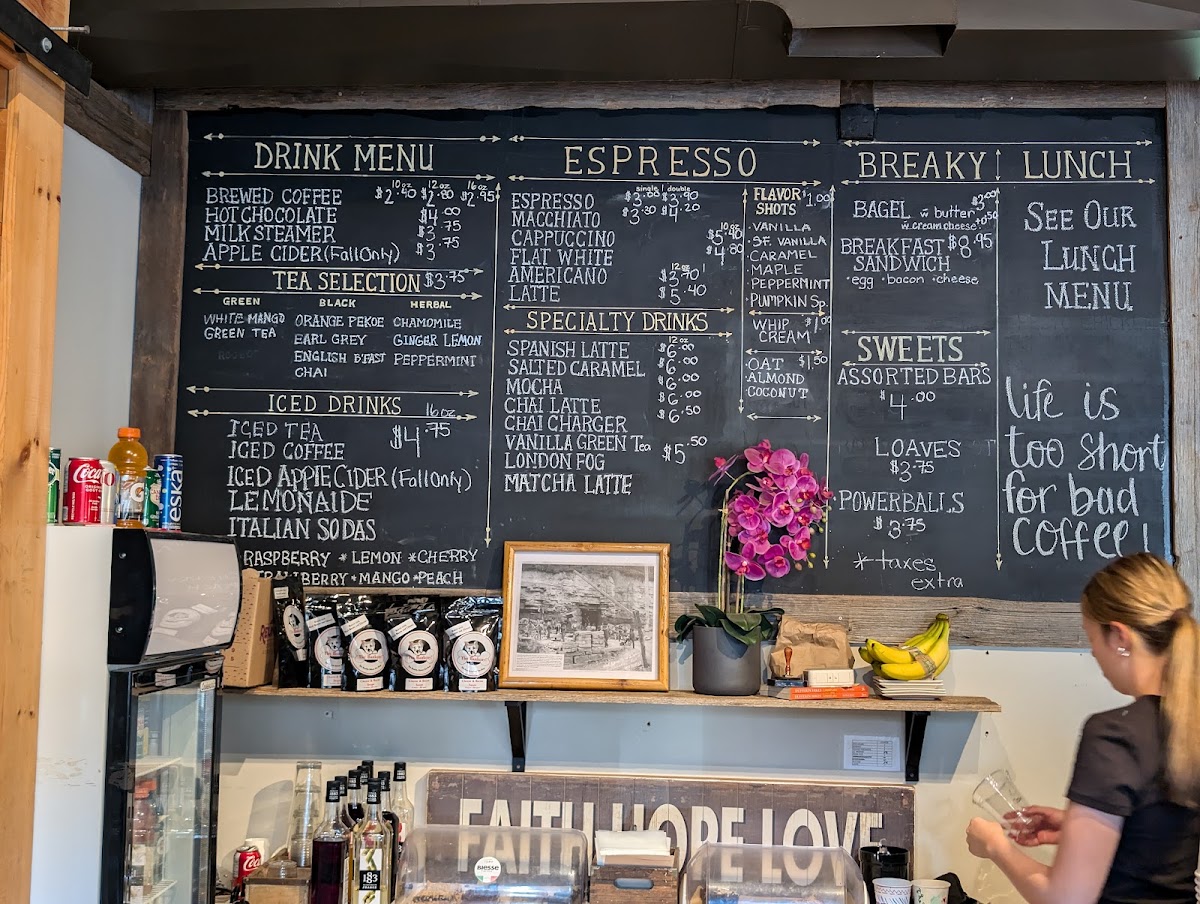 DRINK MENU
10oz 12oz 16oz
BREWED COFFEE $2.40 $2.80 $2.95
HOT CHOCOLATE $4.00
MILK STEAMER $3.75
APPLE CIDER (Fall Only) $3.75
TEA SELECTION $3.75
GREEN BLACK HERBAL
WHITE MANGO ORANGE PEKOE CHAMOMILE
GREEN TEA EARL GREY GINGER LEMON
ENGLISH B'FAST PEPPERMINT
CHAI
ICED DRINKS 16oz
ICED TEA $4.75
ICED COFFEE
ICED APPLE CIDER (Fall Only)
LEMONAIDE
ITALIAN SODAS
RASPBERRY * LEMON * CHERRY
MANGO * PEACH
ESPRESSO
single double
ESPRESSO $3.00 $3.90
MACCHIATO $3.30 $4.20
10oz
CAPPUCCINO $5.40
FLAT WHITE $4.80
12oz
AMERICANO $3.90
LATTE $5.40
SPECIALTY DRINKS
12oz
SPANISH LATTE $6.00
SALTED CARAMEL $6.00
MOCHA $6.00
CHAI LATTE $6.00
CHAI CHARGER $6.50
VANILLA GREEN Tea $5.50
LONDON FOG
MATCHA LATTE
FLAVOR $1.00
SHOTS
• VANILLA
• S.F. VANILLA
• CARAMEL
• MAPLE
• PEPPERMINT
• PUMPKIN Sp.
WHIP $1.00
CREAM
• OAT $1.50
• ALMOND
• COCONUT
BREAKY
BAGEL w butter $3.00
w. cream cheese +0.50
BREAKFAST $8.95
SANDWICH
• egg • bacon • cheese
SWEETS
ASSORTED BARS
$4.00
LOAVES
$3.75
POWERBALLS
$3.75
* taxes
extra
LUNCH
SEE OUR
LUNCH
MENU
life is
too short
for bad
coffee!
Coca
eska
FAITH HOPE LOVE
BIESSE
1883
FRANCE
Coca